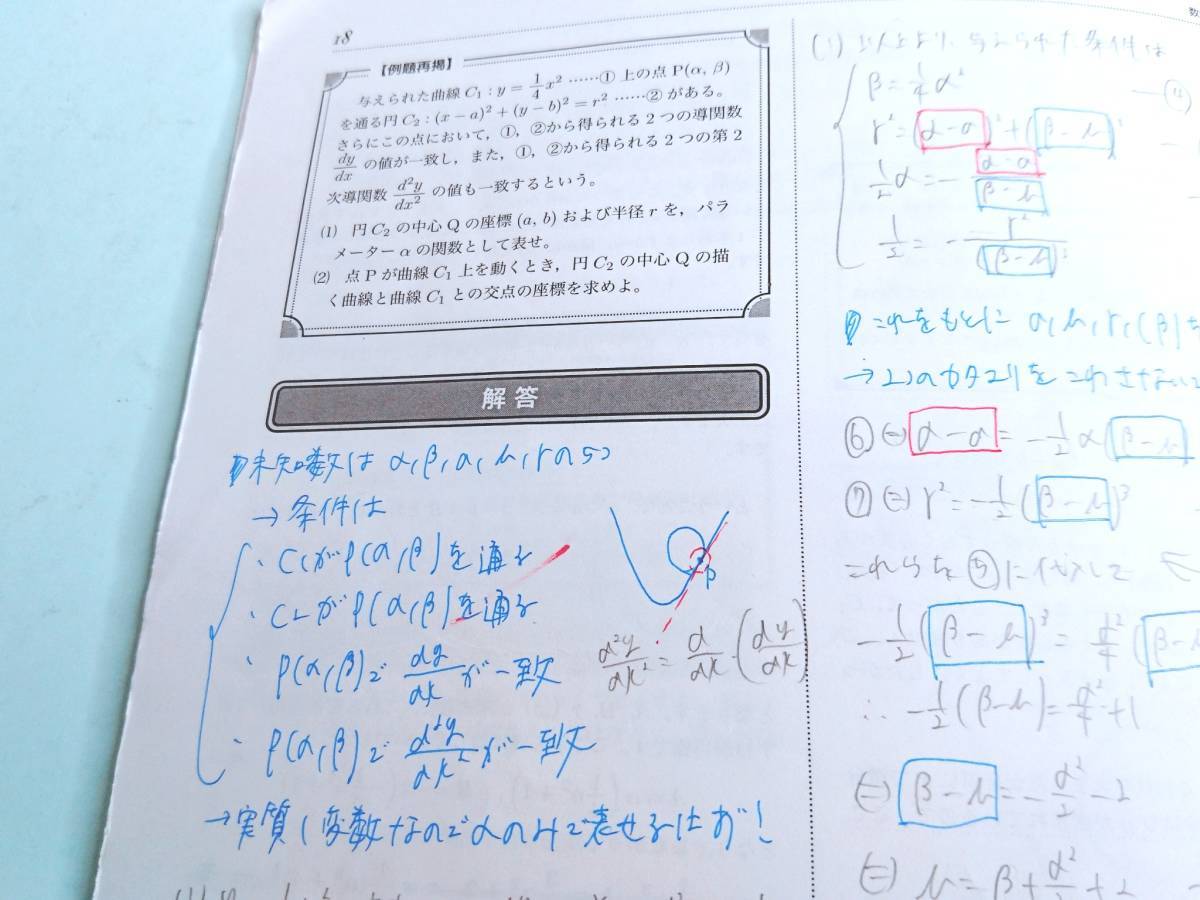 18
【例題再掲】
与えられた曲線 C₁ : y = 1/4 x² ……① 上の点 P(α, β)
を通る円 C₂ : (x − a)² + (y − b)² = r² ……② がある。
さらにこの点において，①，②から得られる 2 つの導関数
dy/dx の値が一致し，また，①，②から得られる 2 つの第 2
次導関数 d²y/dx² の値も一致するという。
(1) 円 C₂ の中心 Q の座標 (a, b) および半径 r を，パラ
メーター α の関数として表せ。
(2) 点 P が曲線 C₁ 上を動くとき，円 C₂ の中心 Q の描
く曲線と曲線 C₁ との交点の座標を求めよ。
解答
未知数は α, β, a, b, r の5つ
→ 条件は
・C₁が P(α, β) を通る
・C₂が P(α, β) を通る
・P(α, β)で dy/dx が一致
・P(α, β)で d²y/dx² が一致
→ 実質1変数なのでαのみで表せるはず！
P
d²y/dx² = d/dx (dy/dx)
数
(1) 以上より、与えられた条件は
β = 1/4 α²
r² = (α − a)² + (β − b)²
1/2 α = − (α − a)/(β − b)
1/2 = − r²/(β − b)³
これをもとに a, b, r, (β) を
→ 2つのカタマリをこわさない
⑥ ⇔ α − a = −1/2 α (β − b)
⑦ ⇔ r² = −1/2 (β − b)³
これらを ⑤ に代入して
−1/2 (β − b)³ = α²/4 (β − b
∴ −1/2 (β − b) = α²/4 + 1
⇔ β − b = − α²/2 − 2
⇔ b = β + α²/2 + 2